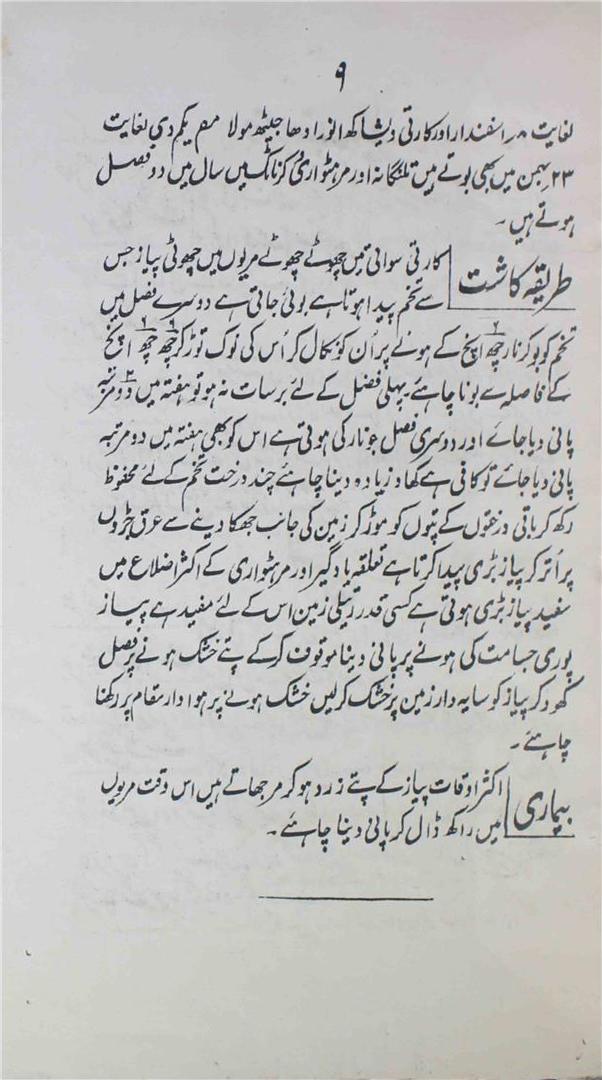 ۹
لغایت ۸ر اسفندار اور کارتی ویشاکھ انورادھا جیٹھ مولا یکم دی لغایت
۲۳ بہمن میں بھی بوتے ہیں تلنگانہ اور مرہٹواری کرناٹک میں سال میں دو فصل
ہوتے ہیں۔
طریقہ کاشت
کارتی سواتی میں چھوٹے چھوٹے مریوں میں چھوٹی پیاز جس
سے تخم پیدا ہوتا ہے بوئی جاتی ہے دوسرے فصل میں
تخم کو بوکر نار چھ ۶ اینچ کے ہونے پر اُن کو نکال کر اُس کی نوک توڑ کر چھ ۶ چھ ۶ اینچ
کے فاصلہ سے بونا چاہئے۔ پہلی فضل کے لئے برسات نہ ہو تو ہفتہ میں دو ۲ مرتبہ
پانی دیا جائے اور دوسری فصل جو نار کی ہوتی ہے اس کو بھی ہفتہ میں دو مرتبہ
پانی دیا جائے تو کافی ہے کھاد زیادہ دینا چاہئے چند درخت تخم کے لئے محفوظ
رکھ کر باقی درختوں کے پتوں کو موڑ کر زمین کی جانب جھکا دینے سے عرق جڑوں
پر اُتر کر پیاز بڑی پیدا کرتا ہے تعلقہ یادگیر اور مرہٹواری کے اکثر اضلاع میں
سفید پیاز بڑی ہوتی ہے کسی قدر ریتلی زمین اس کے لئے مفید ہے پیاز
پوری جسامت کی ہونے پر پانی دینا موقوف کرکے پتے خشک ہونے پر فصل
کھود کر پیاز کو سایہ دار زمین پر خشک کرلیں خشک ہونے پر ہوا دار مقام پر رکھنا
چاہئے۔
بیماری
اکثر اوقات پیاز کے پتے زرد ہو کر مرجھاتے ہیں اس وقت مریوں
میں راکھ ڈال کر پانی دینا چاہئے۔